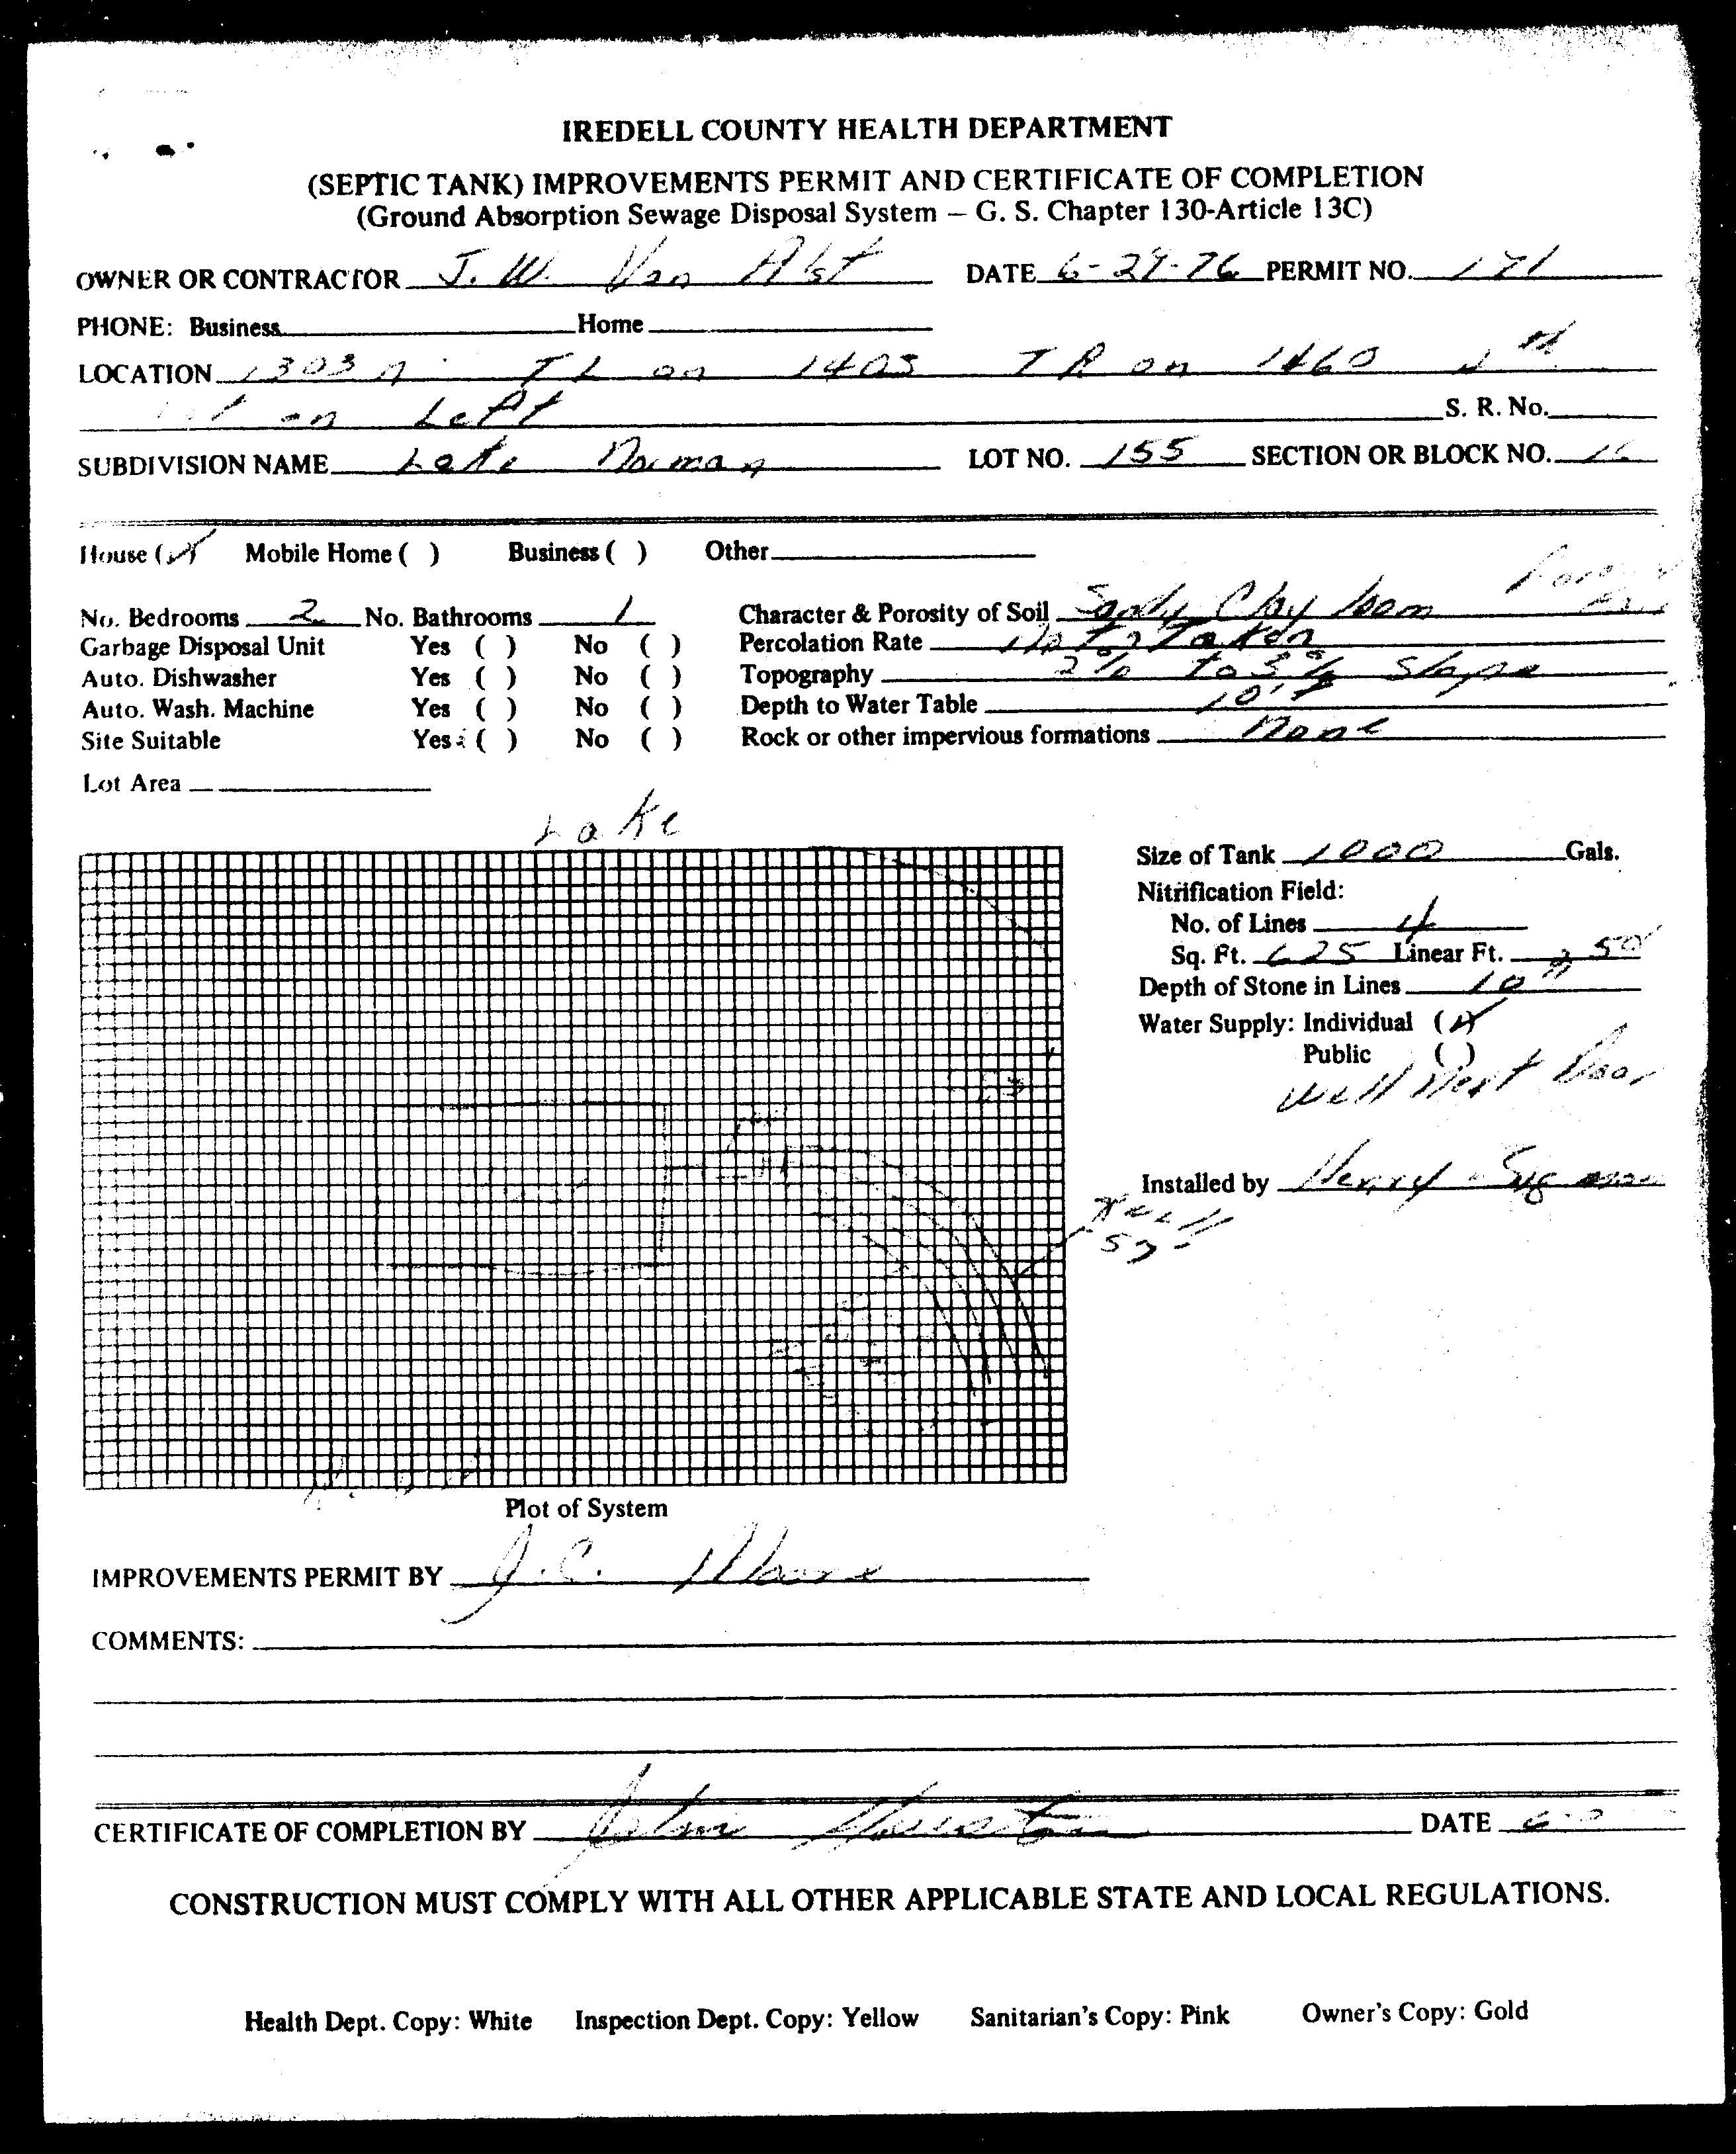 IREDELL COUNTY HEALTH DEPARTMENT
(SEPTIC TANK) IMPROVEMENTS PERMIT AND CERTIFICATE OF COMPLETION
(Ground Absorption Sewage Disposal System – G. S. Chapter 130-Article 13C)
OWNER OR CONTRACTOR J. W. Van Alst DATE 6-29-76 PERMIT NO. 171
PHONE: Business Home
LOCATION 1303 TL on 1403 TR on 1460
on Left S. R. No.
SUBDIVISION NAME Lake Norman LOT NO. 155 SECTION OR BLOCK NO.
House (✓) Mobile Home ( ) Business ( ) Other
No. Bedrooms 2 No. Bathrooms 1 Character & Porosity of Soil Sandy Clay loam
Garbage Disposal Unit Yes ( ) No ( ) Percolation Rate Not Taken
Auto. Dishwasher Yes ( ) No ( ) Topography 2% to 3% slope
Auto. Wash. Machine Yes ( ) No ( ) Depth to Water Table 10'+
Site Suitable Yes ( ) No ( ) Rock or other impervious formations None
Lot Area
Lake
Size of Tank 1000 Gals.
Nitrification Field:
No. of Lines 4
Sq. Ft. 625 Linear Ft. 250'
Depth of Stone in Lines 10"
Water Supply: Individual (✓)
Public ( )
Well Next Door
Installed by Henry
Plot of System
IMPROVEMENTS PERMIT BY J. C. Moore
COMMENTS:
CERTIFICATE OF COMPLETION BY John DATE
CONSTRUCTION MUST COMPLY WITH ALL OTHER APPLICABLE STATE AND LOCAL REGULATIONS.
Health Dept. Copy: White Inspection Dept. Copy: Yellow Sanitarian's Copy: Pink Owner's Copy: Gold